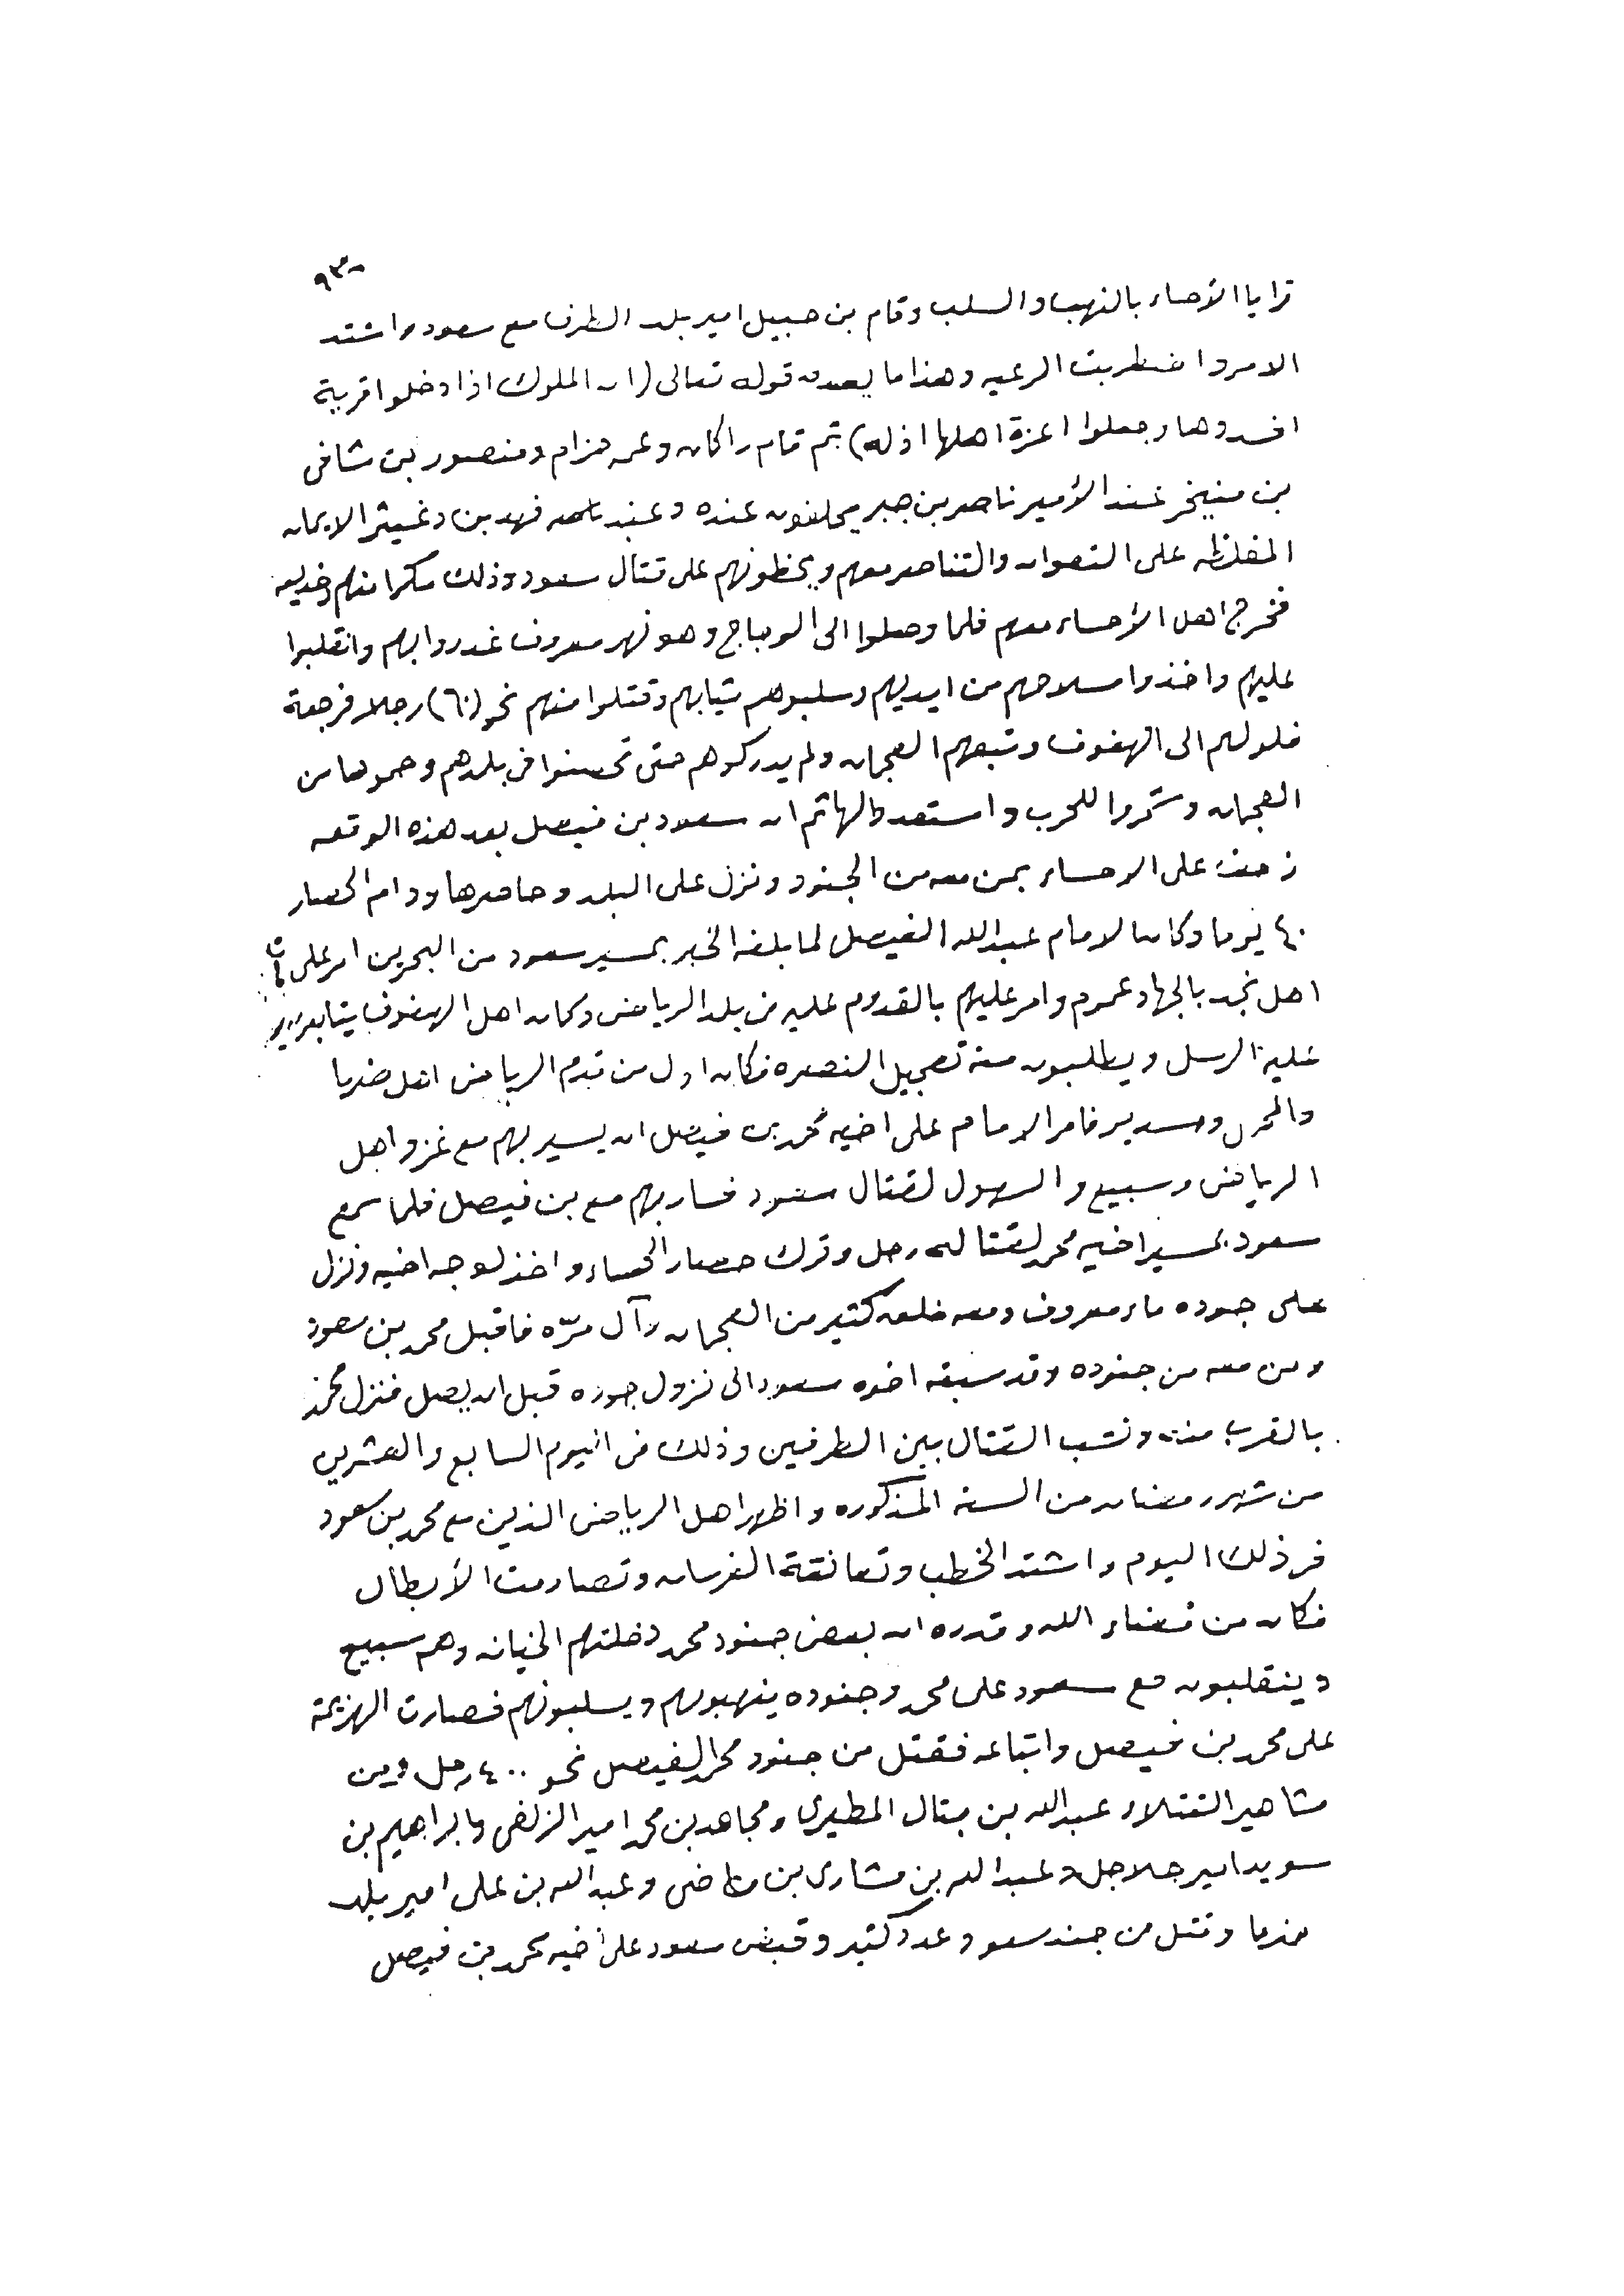 ٩٣-
قرايا الأحساء بالنهب والسلب وقام بن حبيل امير بلد الطرف مع سعود واشتد
الامر واضطربت الرعيه وهذا ما يصدق قوله تعالى (ان الملوك اذا دخلوا قرية
افسدوها وجعلوا اعزة اهلها اذله) ثم قام راكان وعمه حزام ومنصور بن شافي
بن منيخر عند الأمير ناصر بن جبر يحلفون عنده وعند فهد بن دغيثر الايمان
المغلظه على التعوان والتناصر معهم ويحظونهم على قتال سعود وذلك مكرا منهم وخديعه
فخرج اهل الأحساء معهم فلما وصلوا الى الوجاج وهو نهر معروف غدروا بهم وانقلبوا
عليهم واخذوا سلاحهم من ايديهم وسلبوهم ثيابهم وقتلوا منهم نحو (٦٠) رجلا فرجعة
فلولهم الى الهفوف وتبعهم العجمان ولم يدركوهم حتى تحصنوا في بلدهم وحموها من
العجمان وشمروا للحرب واستعدوا لها ثم ان سعود بن فيصل بعد هذه الوقعه
زحف على الاحساء بمن معه من الجنود ونزل على البلد وحاصرها ودام الحصار
٤٠ يوما وكان الامام عبدالله الفيصل لما بلغه الخبر بمسير سعود من البحرين امر على
اهل نجد بالجهاد عموم وامر عليهم بالقدوم عليه في بلد الرياض وكان اهل الهفوف يتابعون
عليه الرسل ويطلبون منه تعجيل النصره فكان اول من قدم الرياض اهل ضرما
والمحمل وسدير فامر الامام على اخيه محمد بن فيصل ان يسير بهم مع غزو اهل
الرياض وسبيع والسهول لقتال سعود فسار بهم مع بن فيصل فلما سمع
سعود بمسير اخيه محمد لقتاله رحل وترك حصار الحساء واخذ لوجه اخيه ونزل
على جوده ماء معروف ومعه خلق كثير من العجمان وآل مرّه فاقبل محمد بن سعود
ومن معه من جنوده وقد سبقه اخوه سعود الى نزول جوده قبل ان يصل فنزل محمد
بالقرب منه ونشب القتال بين الطرفين وذلك في اليوم السابع والعشرين
من شهر رمضان من السنه المذكوره واظهر اهل الرياض الذين مع محمد بن سعود
في ذلك اليوم واشتد الخطب وتعانقة الفرسان وتصادمت الأبطال
فكان من قضاء الله وقدره ان بعض جنود محمد دخلتهم الخيانه وهم سبيع
وينقلبون مع سعود على محمد وجنوده ينهبولهم ويسلبونهم فصارت الهزيمة
على محمد بن فيصل واتباعه فقتل من جنود محمد الفيصل نحو ٤٠٠ رجل ومن
مشاهير القتلاء عبدالله بن بتال المطيري ومجاهد بن محمد امير الزلفي وابراهيم بن
سويد امير جلاجل وعبدالله بن مشاري بن ماضي وعبدالله بن علي امير بلد
ضرما وقتل من جند سعود عدد كثير وقبض سعود على اخيه محمد بن فيصل